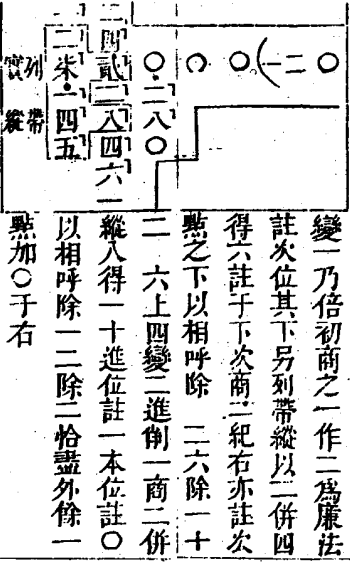 〇
二
一
〇
〇
〇二八〇
二四貳二八四六一
二柒四五
列實
帶縱
變一乃倍初商之一作二爲廉法
註次位其下另列帶縱以二併四
得六註于下次商二紀右亦註次
點之下以相呼除 二六除一十
二 六上四變二進削一商二併
縱八得一十進位註一本位註〇
以相呼除一二除二恰盡外餘一
點加〇于右